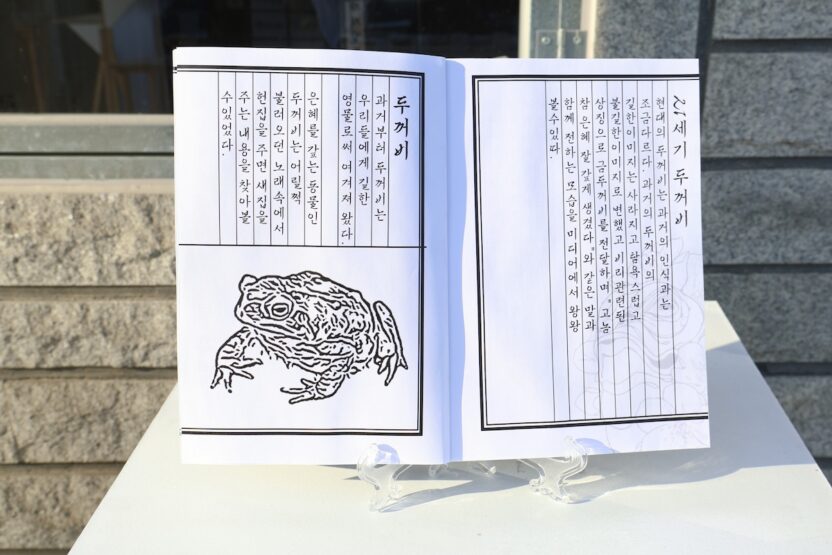 두꺼비
과거부터 두꺼비는
우리들에게 길한
영물로써 여겨져 왔다.
은혜를 갚는 동물인
두꺼비는 어릴쩍
불러오던 노래속에서
헌집을 주면 새집을
주는 내용을 찾아볼
수있었다.
21세기 두꺼비
현대의 두꺼비는 과거의 인식과는
조금다르다. 과거의 두꺼비의
길한이미지는 사라지고 탐욕스럽고
불길한이미지로 변했고 비리관련된
상징으로 금두꺼비를 전달하며, "고놈
참 은혜 잘 갚게 생겼다."와 같은 말과
함께 전하는 모습을 미디어에서 왕왕
볼수있따.